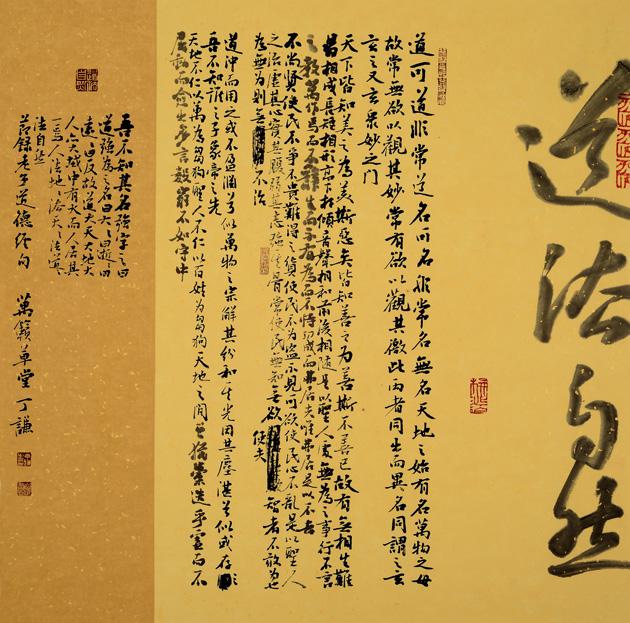 道法自然
道可道非常道名可名非常名無名天地之始有名萬物之母
故常無欲以觀其妙常有欲以觀其徼此兩者同出而異名同謂之玄
玄之又玄眾妙之門
天下皆知美之為美斯惡矣皆知善之為善斯不善已故有無相生難
易相成長短相形高下相傾音聲相和前後相隨是以聖人處無為之事行不言
之教萬物作焉而不辭生而不有為而不恃功成而弗居夫唯弗居是以不去
不尚賢使民不爭不貴難得之貨使民不為盜不見可欲使民心不亂是以聖人
之治虛其心實其腹弱其志強其骨常使民無知無欲使夫智者不敢為也
為無為則無不治
道沖而用之或不盈淵兮似萬物之宗解其紛和其光同其塵湛兮似或存
吾不知誰之子象帝之先
天地不仁以萬物為芻狗聖人不仁以百姓為芻狗天地之間其猶橐籥乎虛而不
屈動而愈出多言數窮不如守中
吾不知其名強字之曰
道強為之名曰大大曰逝逝曰
遠遠曰反故道大天大地大
人亦大域中有四大而人居其
一焉人法地地法天天法道道
法自然
節錄老子道德經句 萬籟草堂 丁謙